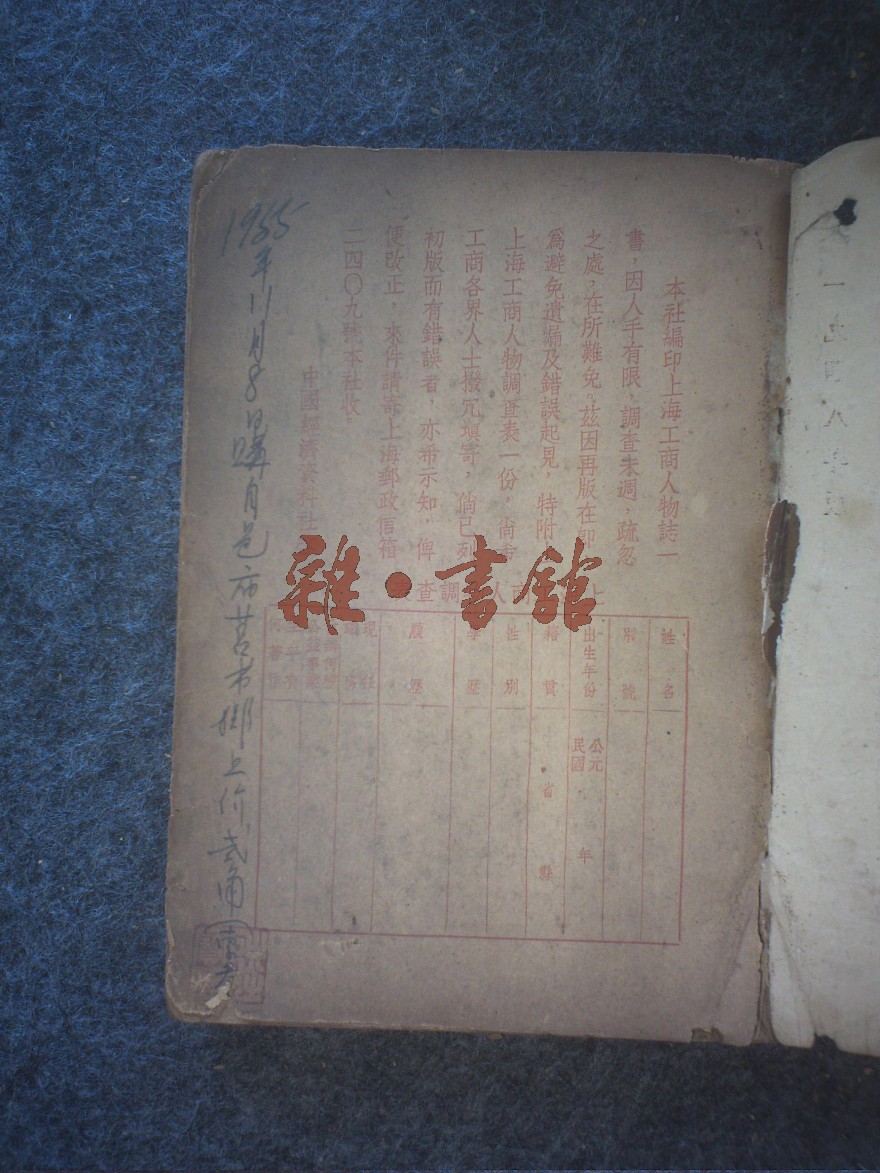 本社編印上海工商人物誌一
書，因人手有限，調查未週，疏忽
之處，在所難免，茲因再版在即，
爲避免遺漏及錯誤起見，特附
上海工商人物調查表一份，尚希
工商各界人士撥冗填寄，倘已列
初版而有錯誤者，亦希示知，俾
便改正，來件請寄上海郵政信箱
二四〇九號本社收。
中國經濟資料社
上 商人 調查
姓名
別號
出生年份 公元 民國 年
籍貫 省 縣
性別
學歷
履歷
現任
1955年11月8日購自邑庙 書 上价弍角
雜·書館